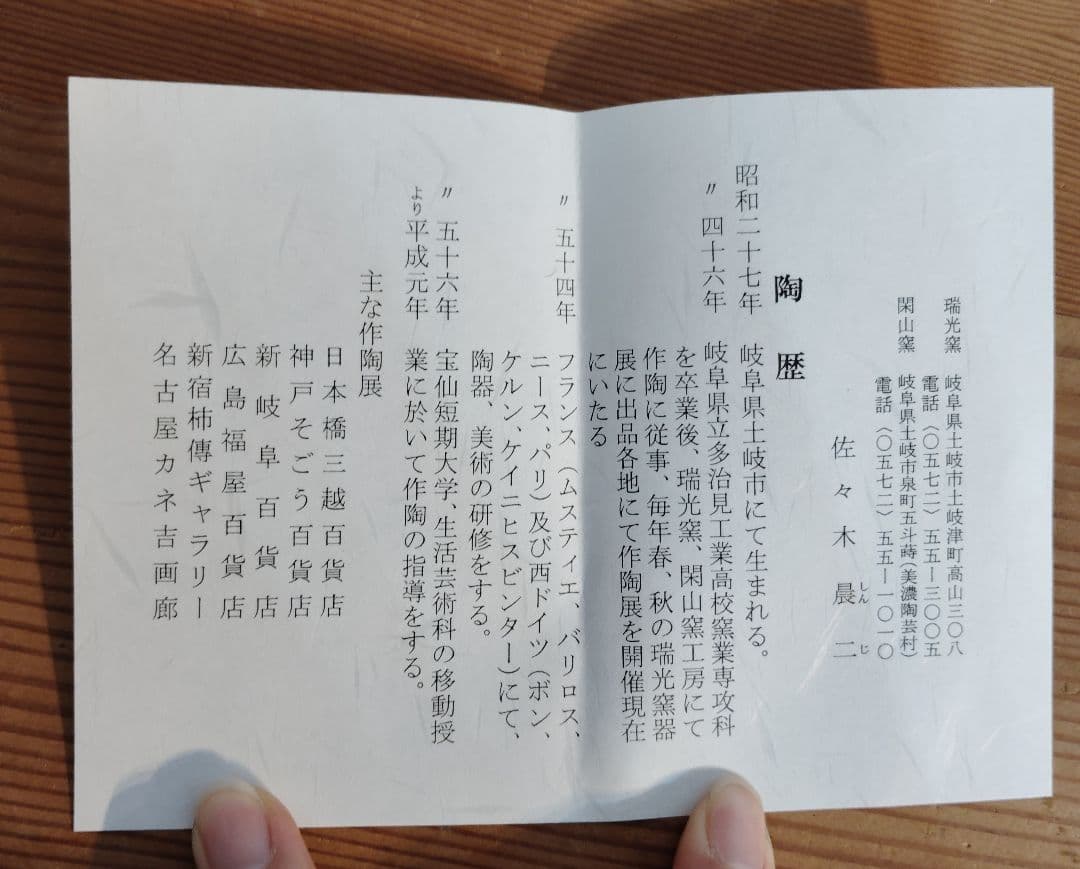 瑞光窯 岐阜県土岐市土岐津町高山三〇八
電話（〇五七二）五五―三〇〇五
閑山窯 岐阜県土岐市泉町五斗蒔（美濃陶芸村）
電話（〇五七二）五五―一〇一〇
佐々木晨二
しんじ
陶歴
昭和二十七年 岐阜県土岐市にて生まれる。
〃 四十六年 岐阜県立多治見工業高校窯業専攻科
を卒業後、瑞光窯、閑山窯工房にて
作陶に従事、毎年春、秋の瑞光窯器
展に出品各地にて作陶展を開催現在
にいたる
〃 五十四年 フランス（ムスティエ、バリロス、
ニース、パリ）及び西ドイツ（ボン、
ケルン、ケイニヒスビンター）にて、
陶器、美術の研修をする。
〃 五十六年 宝仙短期大学、生活芸術科の移動授
より平成元年 業に於いて作陶の指導をする。
主な作陶展
日本橋三越百貨店
神戸そごう百貨店
新岐阜百貨店
広島福屋百貨店
新宿柿傳ギャラリー
名古屋カネ吉画廊